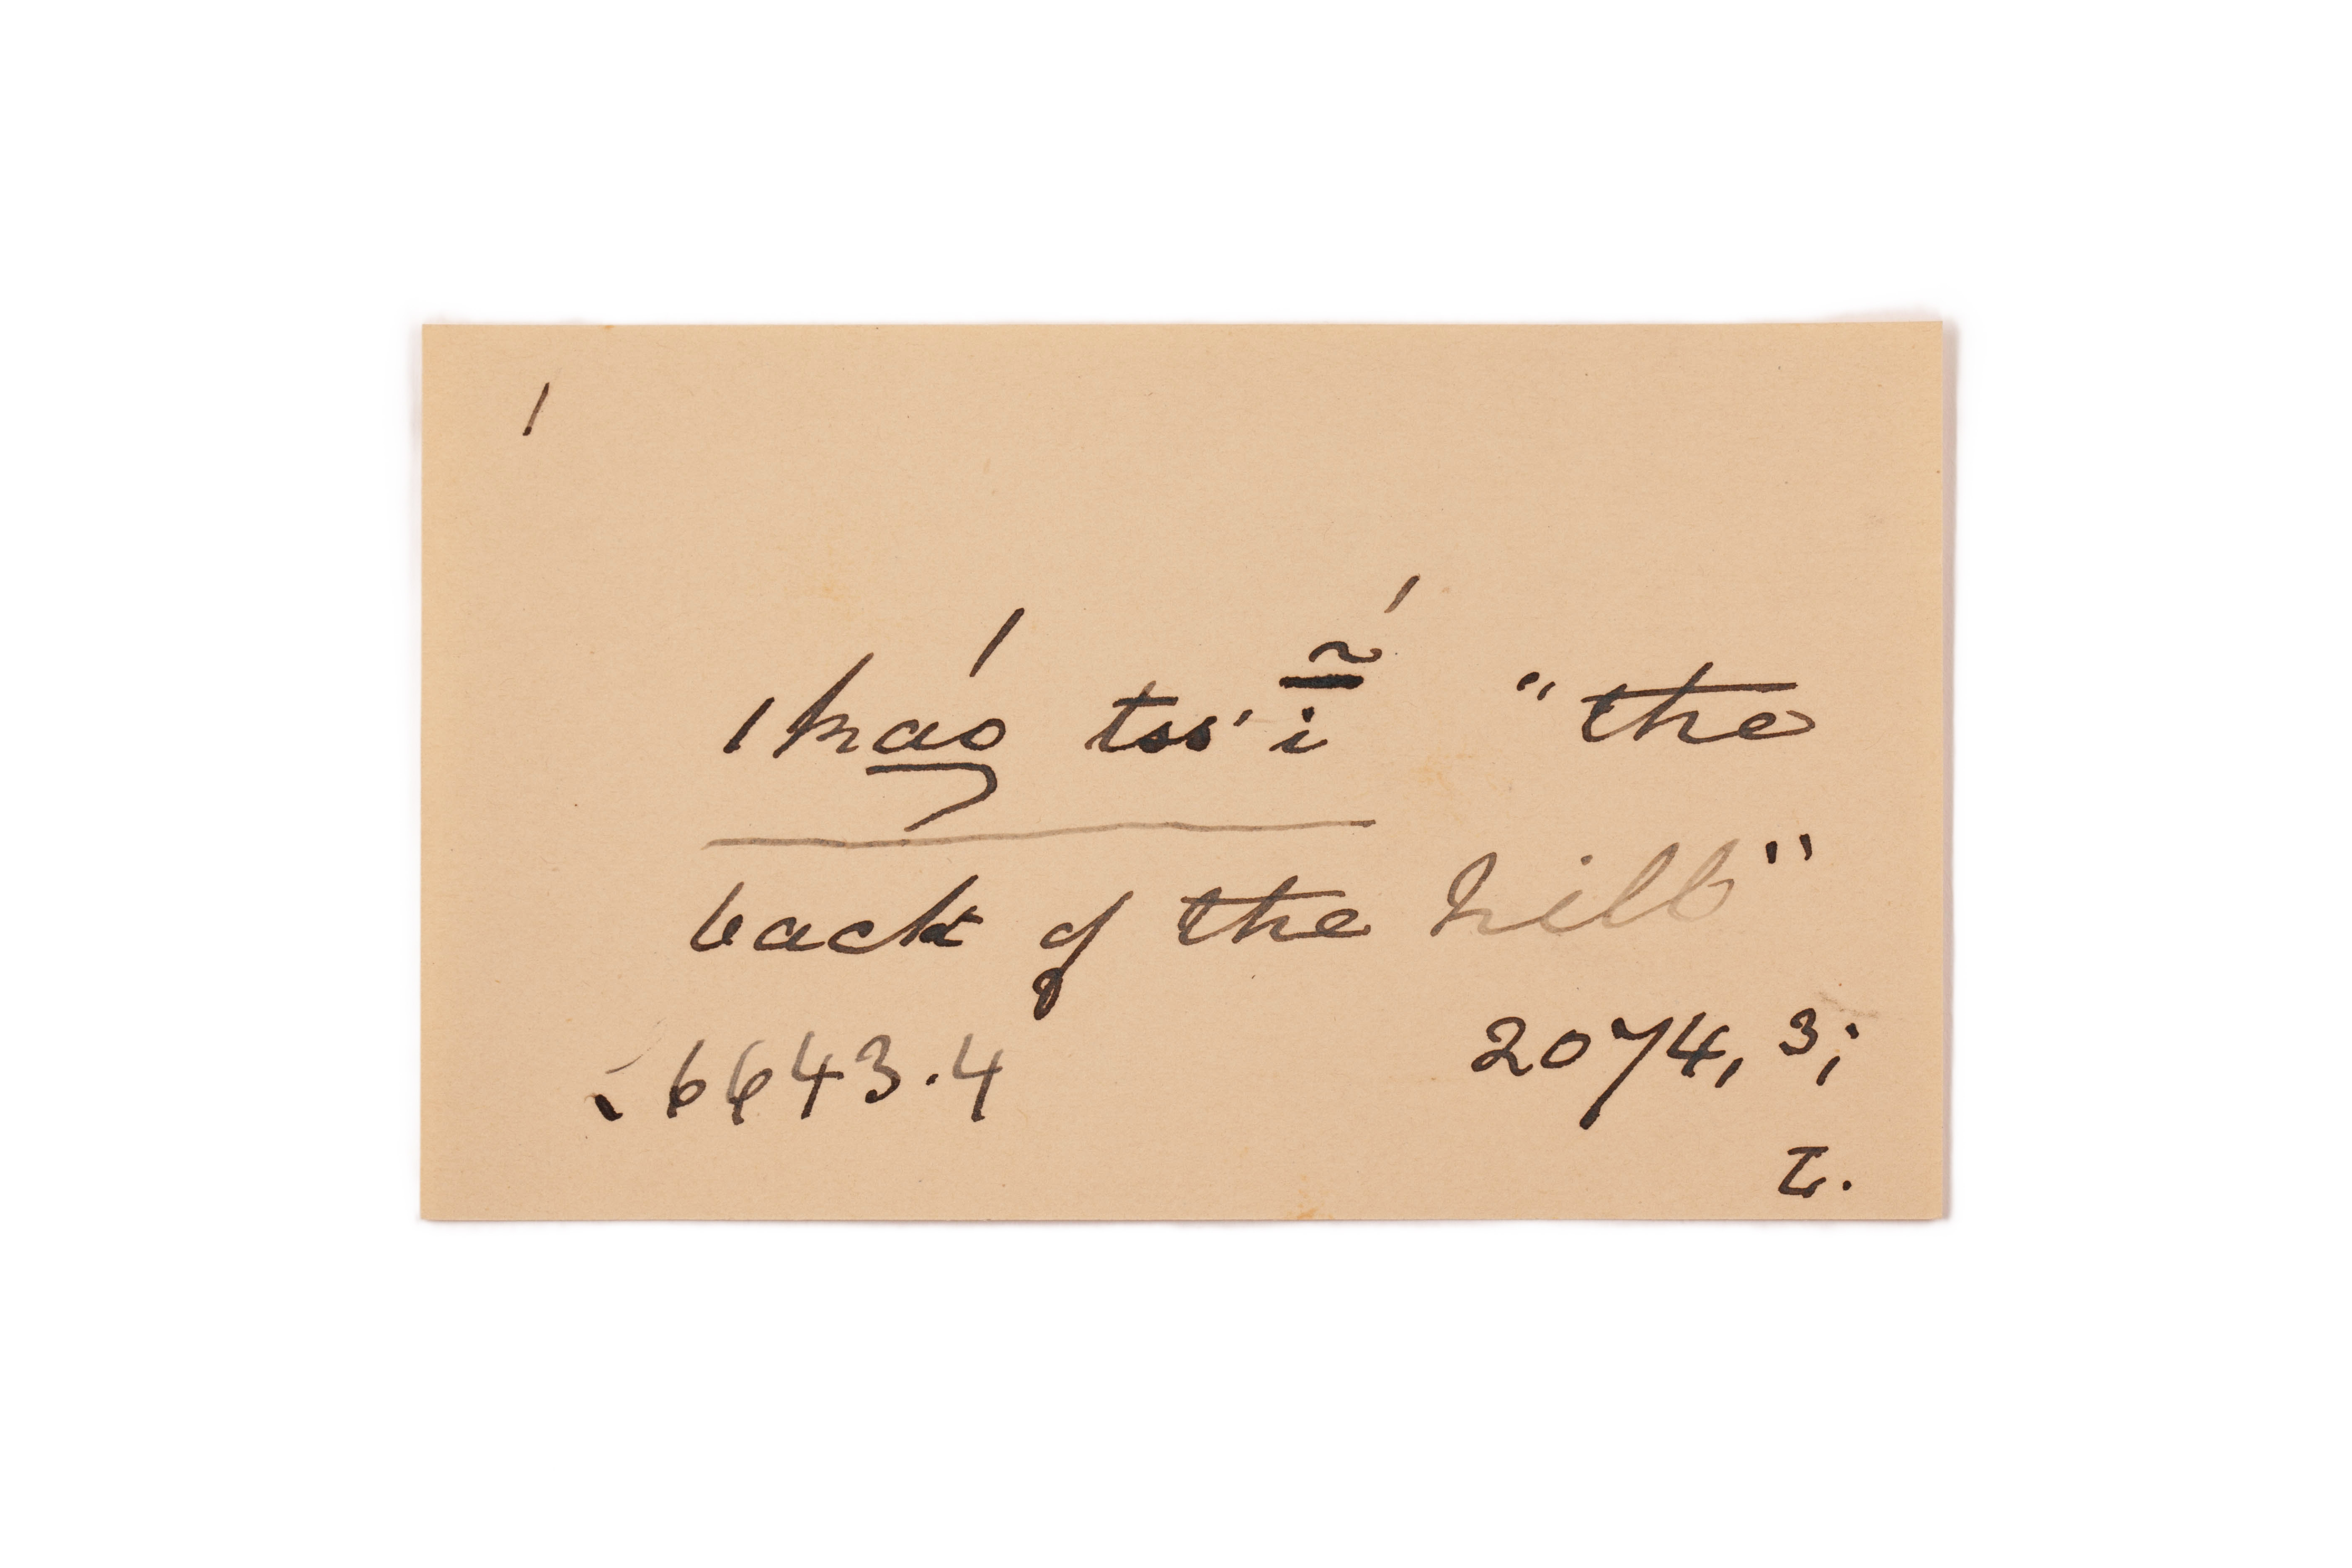 |
|káo̱ tss'ĩ̄́ "the
back of the hill"
6643.4 2074, 3;